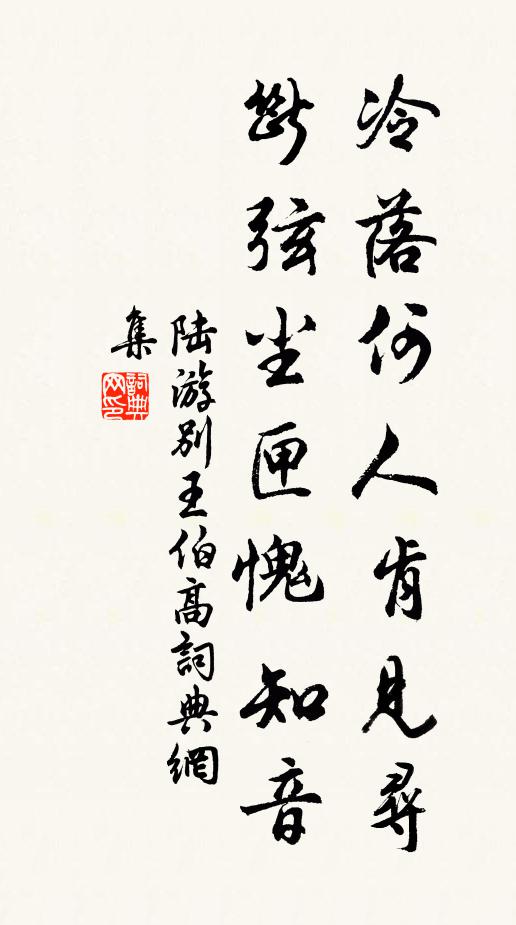 冷落何人肯見尋
斷弦尘匣愧知音
陆游別王伯高詞典網
集
詞典网印